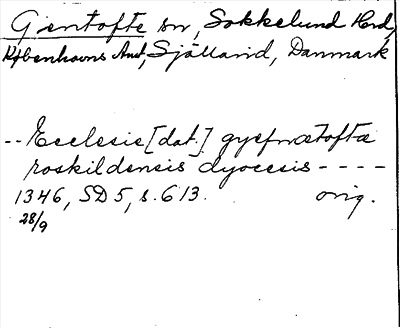 Gentofte sn, Sokkelund Hrd,
Københavns Amt, Själland, Danmark
-- Ecclesie [dat.] gyefnætoftæ
roskildensis dyocesis ----
1346, SD 5, s. 613. orig.
28/9